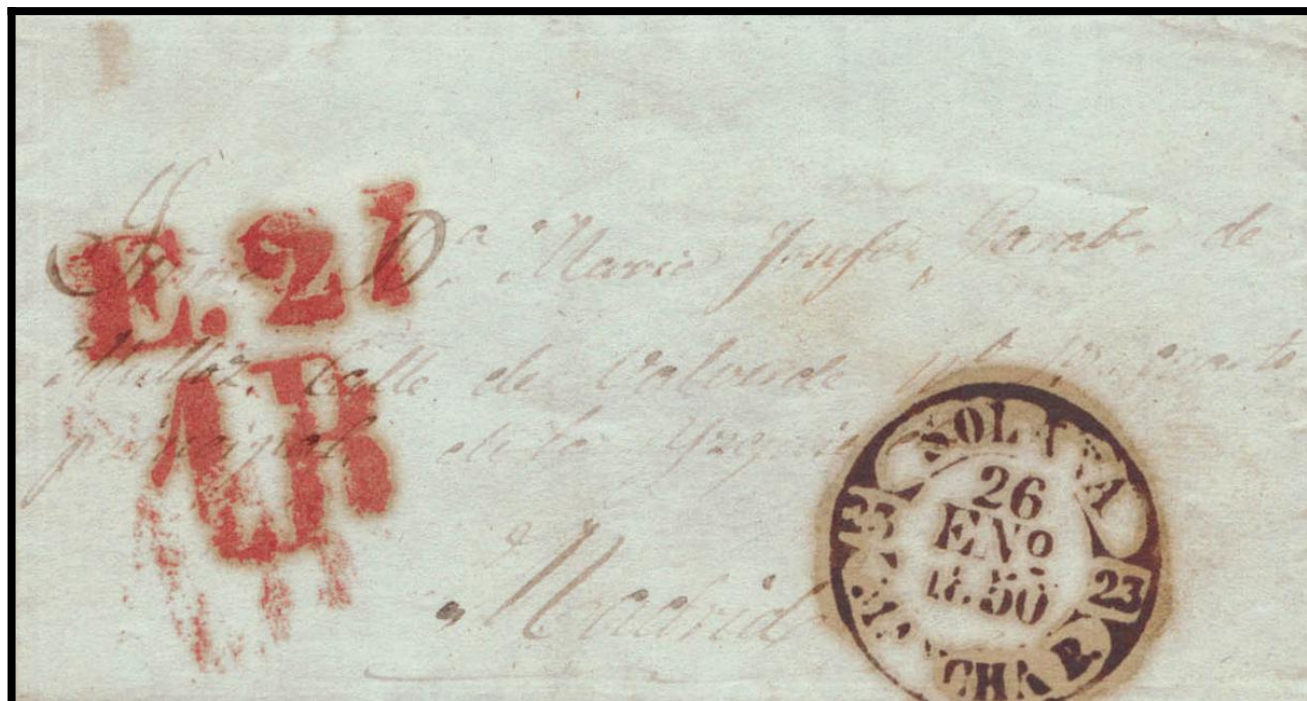 E. 2 1
AR
Sra. Da. Maria Josefa de
Muñoz. Calle de Valverde cuarto
principal de la
Madrid
SOLANA
26
ENº
1850
23 23
MANCHA B.